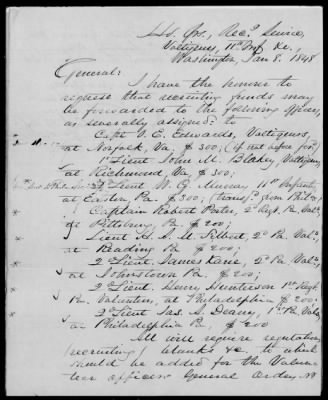 Hd. Qrs. Rec'g Service,
Voltigeurs, 11th Inf. &c.,
Washington, Jan 8. 1848
General:
I have the honor to
request that recruiting funds may
be forwarded to the following officers,
as severally assigned: to
Capt. J. E. Edwards, Voltigeurs,
at Norfolk, Va. $300; (if not before for)
1st Lieut John M. Blakey, Voltigeurs
at Richmond, Va, $300;
2d Lieut W. G. Murray 11th Infantry
at Easton, Pa. $300; from Phila
Captain Robert Porter, 2d Regt. Pa. Vol.
at Pittsburg, Pa. $200;
Lieut 2d Pa. Vols.
at Reading Pa $200;
2d Lieut. James Kane, 2d Pa. Vols.
at Johnstown Pa. $200;
2d Lieut. 1st Regt.
Pa. Volunteers, at Philadelphia $200;
2d Lieut. Jas. S. 1st Pa. Vols,
at Philadelphia Pa, $200
All will require regulations
(recruiting) blanks &c. to which
should be added for the Volun-
teer officers General Orders, No